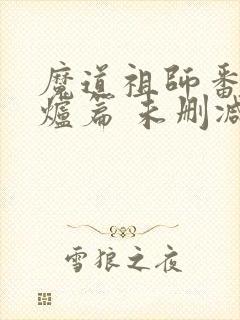 魔道祖師番
爐篇 未刪減
雪狼之夜